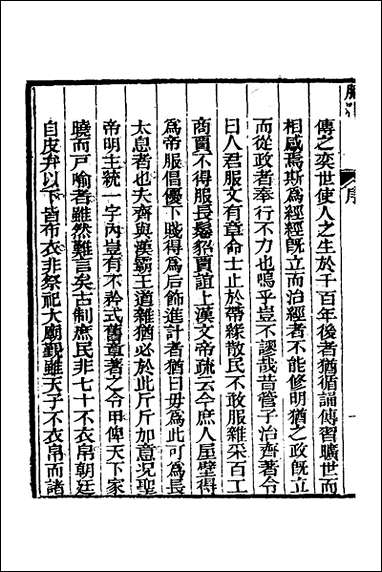 傳之奕世使人之生於千百年後者猶循誦傳習曠世而
相感焉斯為經經既立而治經者不能修明猶之政既立
而從政者奉行不力也嗚乎豈不謬哉昔管子治齊著令
曰人君服文有章命士止於帶緣散民不敢服雜采百工
商賈不得服長鬈貂賈誼上漢文帝疏云今庶人屋壁得
為帝服倡優下賤得為后飾進計者猶曰毋為此可為長
太息者也夫齊與漢霸王道雜猶必於此斤斤加意况聖
帝明主統一字內豈有不矜式舊章著之令甲俾天下家
曉而戸喻者雖然難言矣古制庶民非七十不衣帛朝廷
自皮弁以下皆布衣非祭祀大廟覲雖天子不衣帛而諸
序